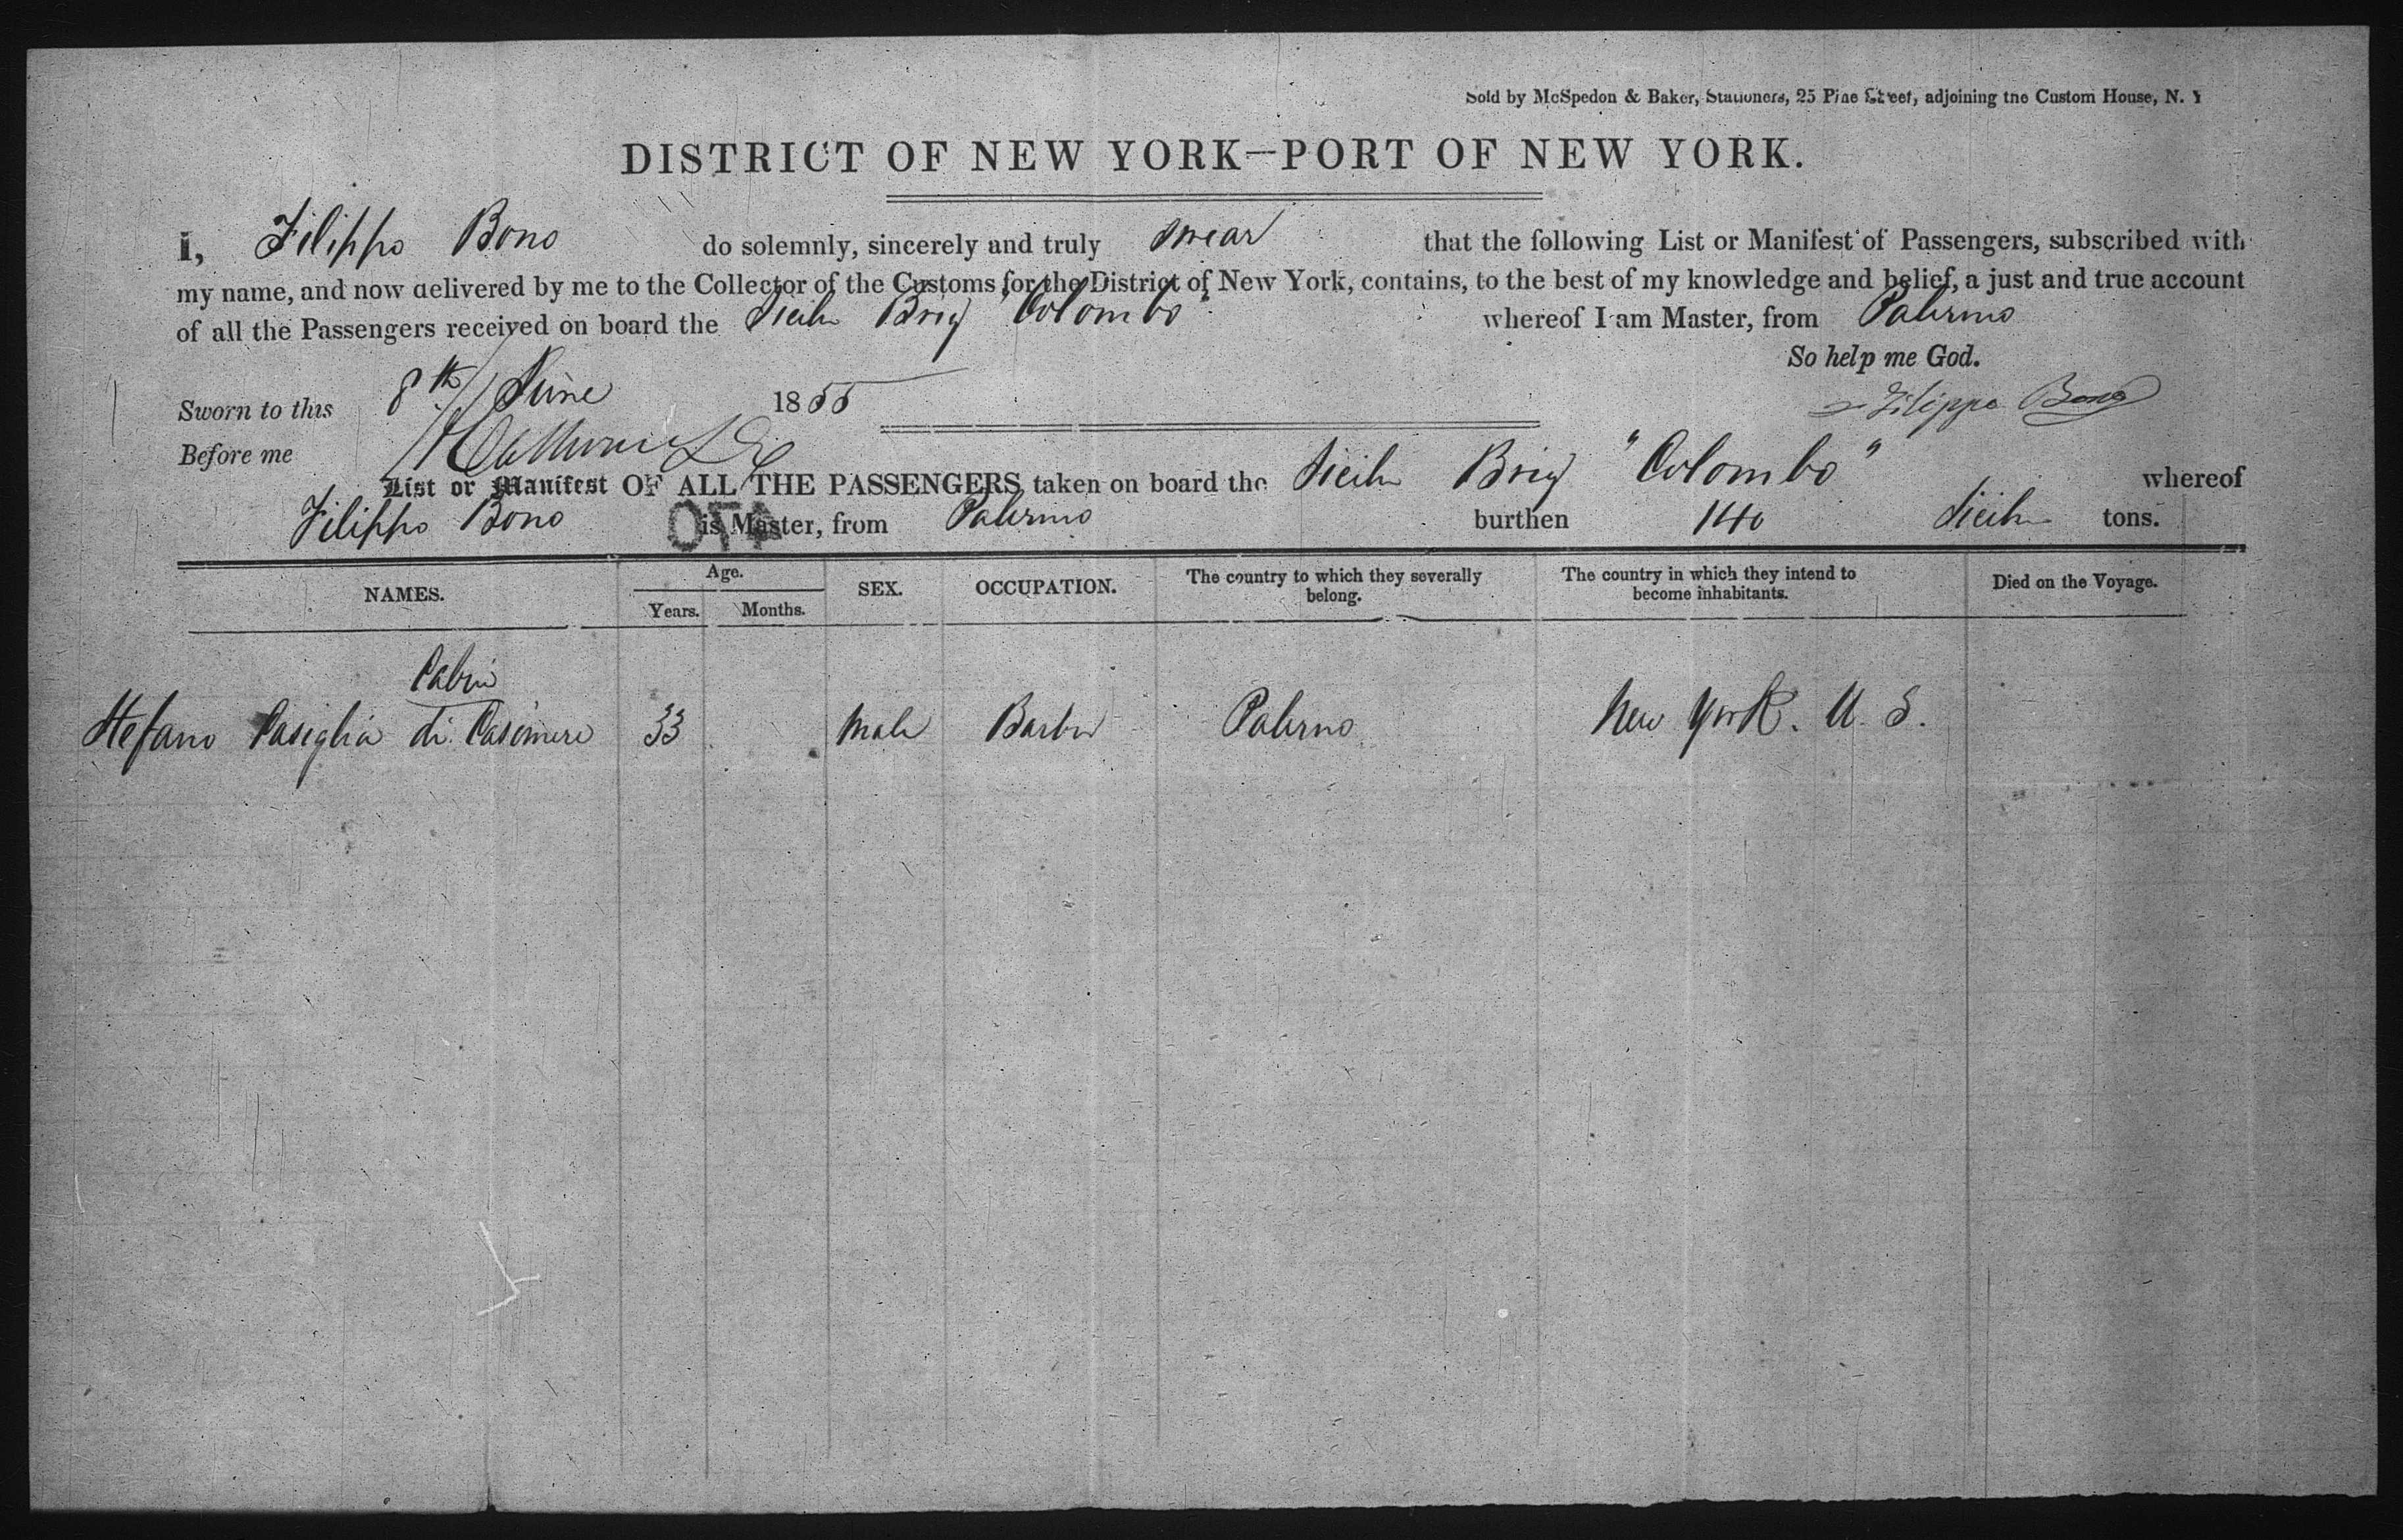 Sold by McSpedon & Baker, Stationers, 25 Pine Street, adjoining the Custom House, N. Y
DISTRICT OF NEW YORK—PORT OF NEW YORK.
I, Filippo Bono do solemnly, sincerely and truly swear that the following List or Manifest of Passengers, subscribed with
my name, and now delivered by me to the Collector of the Customs for the District of New York, contains, to the best of my knowledge and belief, a just and true account
of all the Passengers received on board the Siciln Brig "Colombo" whereof I am Master, from Palermo
So help me God.
Sworn to this 8th June 1855 Filippo Bono
Before me
List or Manifest OF ALL THE PASSENGERS taken on board the Siciln Brig "Colombo" whereof
Filippo Bono is Master, from Palermo burthen 140 Siciln tons.
NAMES. Age. Years. Months. SEX. OCCUPATION. The country to which they severally belong. The country in which they intend to become inhabitants. Died on the Voyage.
Cabin
Stefano Casiglia di Casimere 33 Male Barber Palermo New York. U. S.